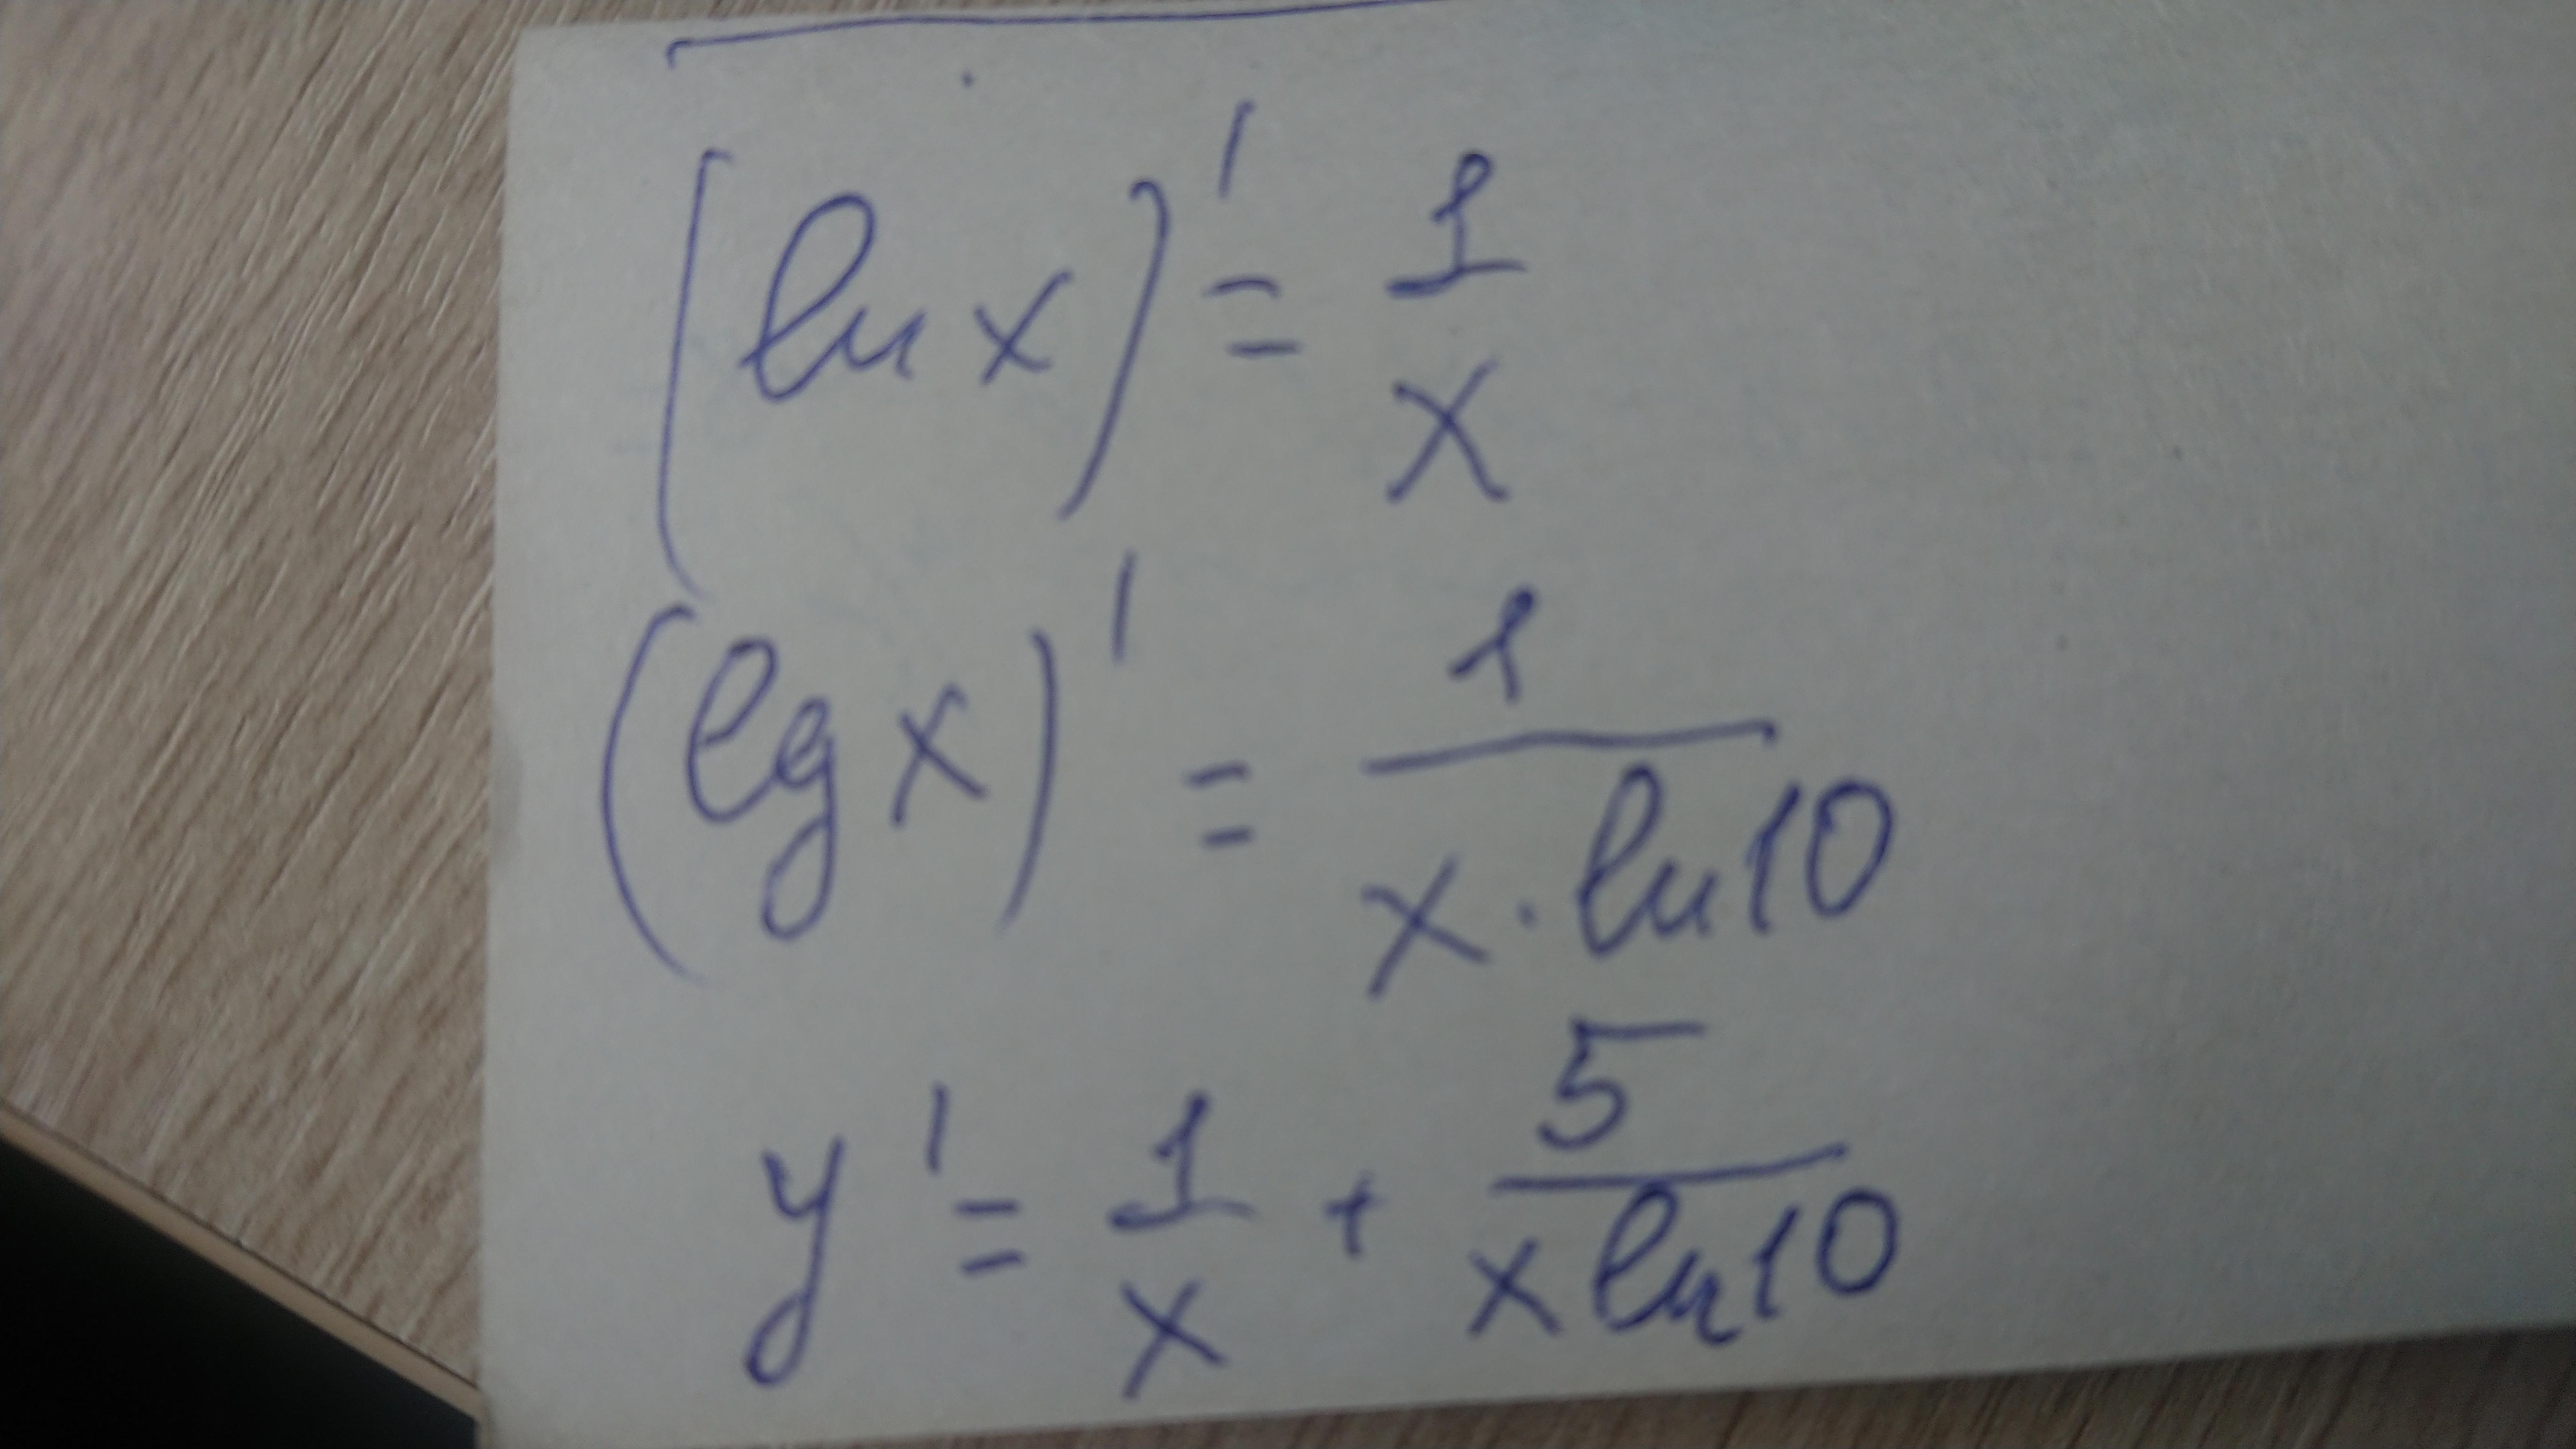 (ln x)' = 1/x
(lg x)' = 1/(x · ln 10)
y' = 1/x + 5/(x ln 10)